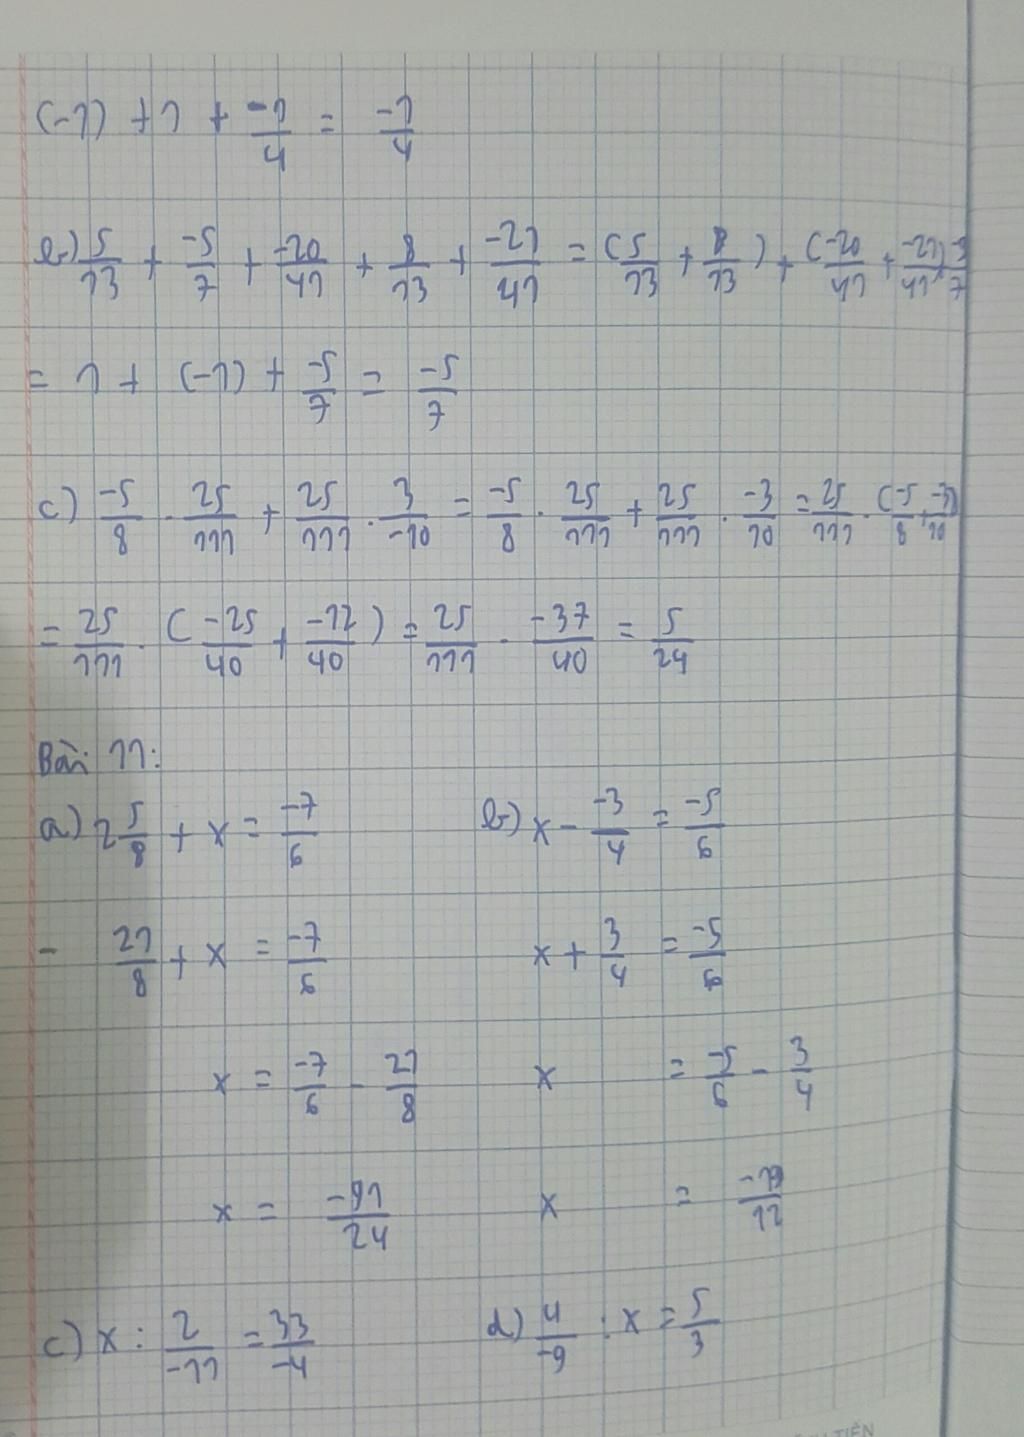 (-1) + 1 + -1/4 = -1/4
b) 5/13 + -5/7 + -20/41 + 8/13 + -21/41 = (5/13 + 8/13) + (-20/41 + -21/41) + -5/7
= 1 + (-1) + -5/7 = -5/7
c) -5/8 . 25/111 + 25/111 . 3/-10 = -5/8 . 25/111 + 25/111 . -3/10 = 25/111 . (-5/8 + -3/10)
= 25/111 . (-25/40 + -12/40) = 25/111 . -37/40 = 5/24
Bài 11:
a) 2 5/8 + x = -7/6 b) x - -3/4 = -5/6
- 21/8 + x = -7/6 x + 3/4 = -5/6
x = -7/6 - 21/8 x = -5/6 - 3/4
x = -91/24 x = -19/12
c) x : 2/-11 = 33/-4 d) 4/-9 : x = 5/3